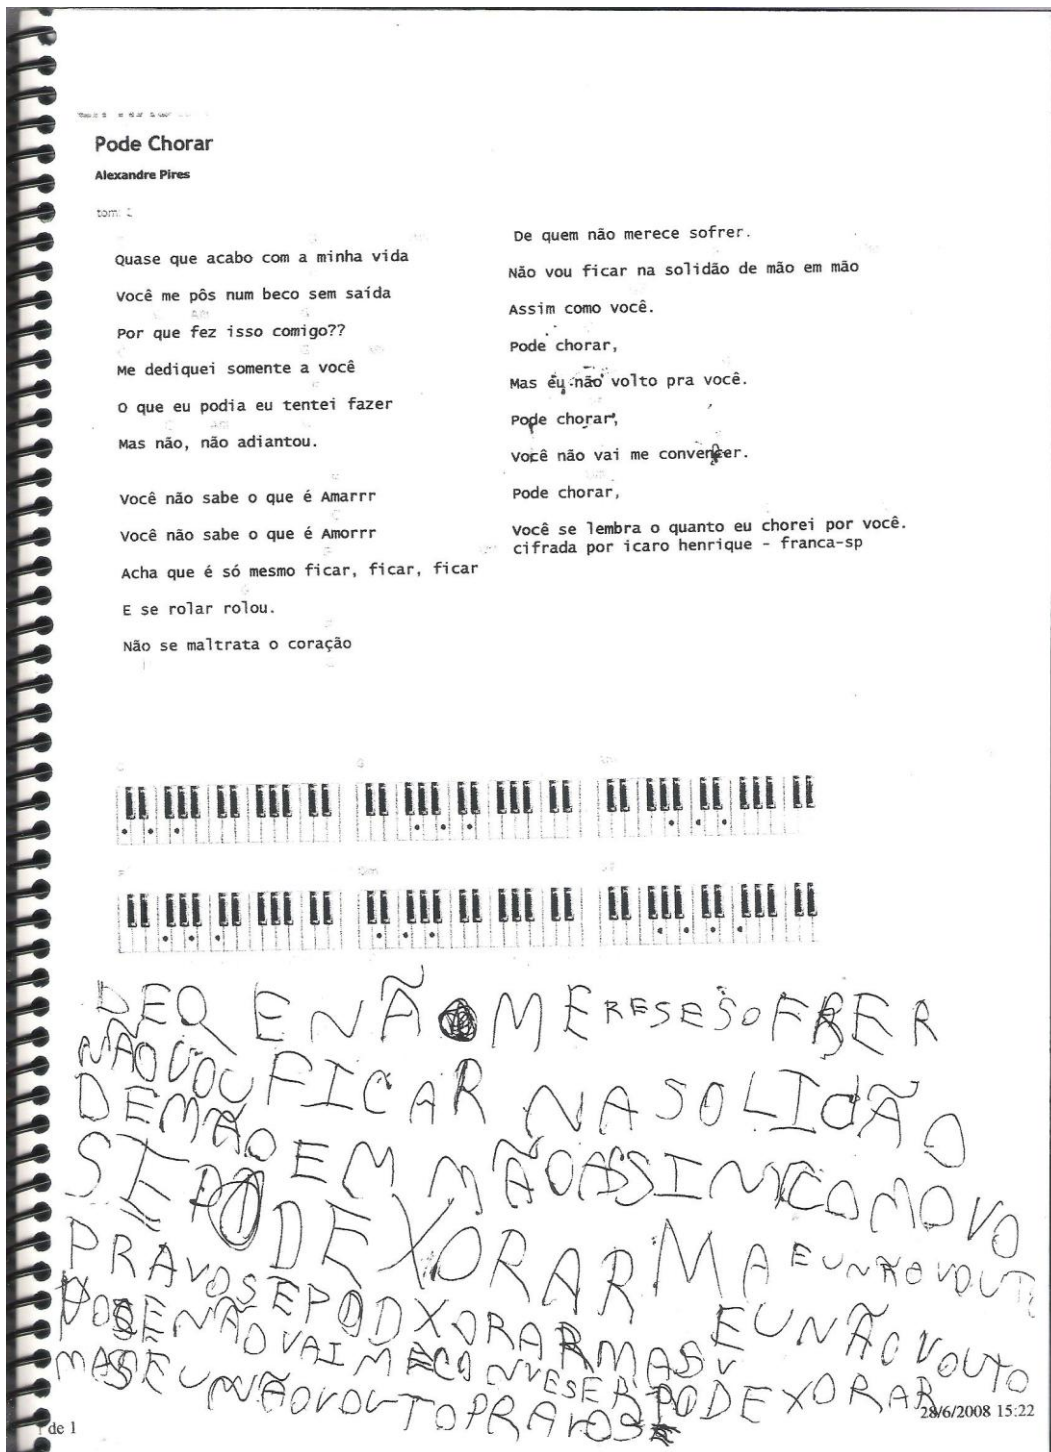 Pode Chorar
Alexandre Pires
tom:
Quase que acabo com a minha vida
Você me pôs num beco sem saída
Por que fez isso comigo??
Me dediquei somente a você
O que eu podia eu tentei fazer
Mas não, não adiantou.
Você não sabe o que é Amarrr
Você não sabe o que é Amorrr
Acha que é só mesmo ficar, ficar, ficar
E se rolar rolou.
Não se maltrata o coração
De quem não merece sofrer.
Não vou ficar na solidão de mão em mão
Assim como você.
Pode chorar,
Mas eu não volto pra você.
Pode chorar,
Você não vai me convencer.
Pode chorar,
Você se lembra o quanto eu chorei por você.
cifrada por icaro henrique - franca-sp
C G
F Dm
DEQ E NÃO MERESE SOFRER
NÃO VOU FICAR NA SOLIDÃO
DEMÃO EM MÃO ASSIM COMO VO
SE PODE XORAR MA EU NÃO VOUTO
PRA VOSE PODXORAR MAS EU NÃO VOUTO
VOSE NÃO VAI ME CONVESER PODEXORAR
MAS EU NÃO VOUTO PRA VOSE
de 1
28/6/2008 15:22